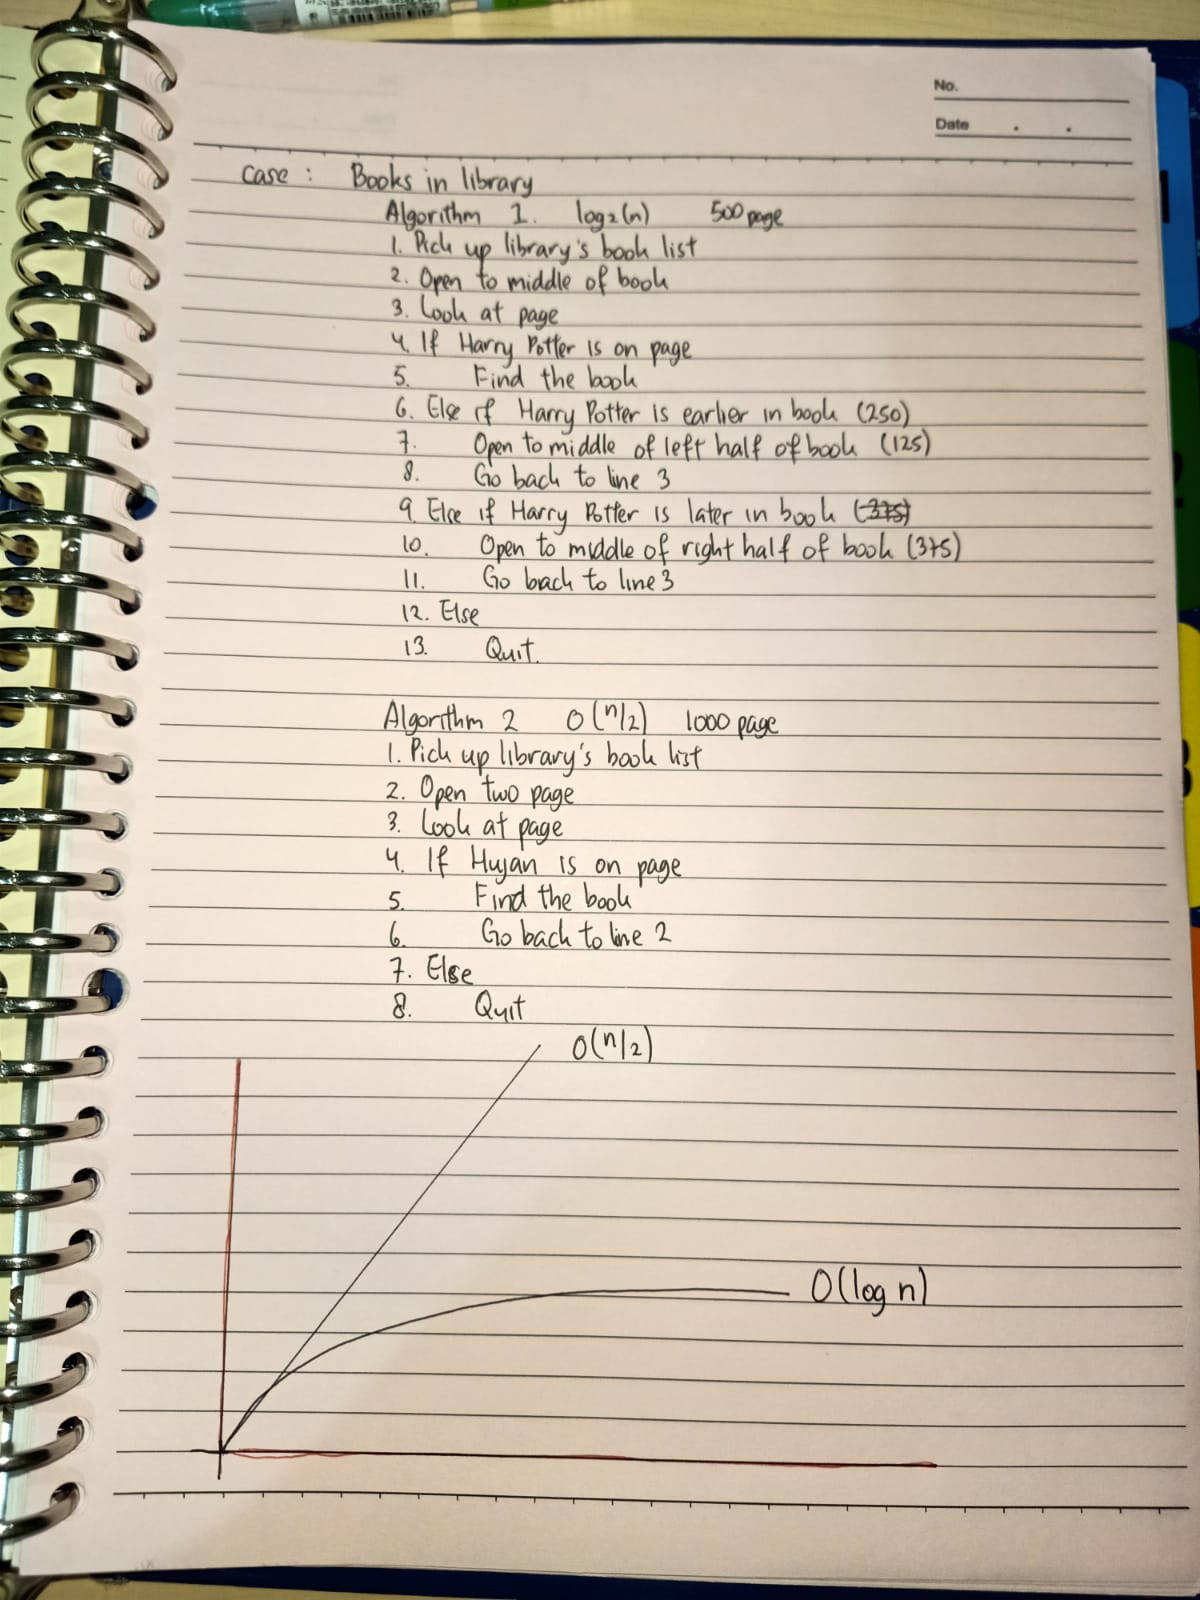 No.
Date . .
Case : Books in library
Algorithm 1. log2(n) 500 page
1. Pick up library's book list
2. Open to middle of book
3. Look at page
4. If Harry Potter is on page
5. Find the book
6. Else if Harry Potter is earlier in book (250)
7. Open to middle of left half of book (125)
8. Go back to line 3
9. Else if Harry Potter is later in book (375)
10. Open to middle of right half of book (375)
11. Go back to line 3
12. Else
13. Quit.
Algorithm 2 O(n/2) 1000 page
1. Pick up library's book list
2. Open two page
3. Look at page
4. If Hujan is on page
5. Find the book
6. Go back to line 2
7. Else
8. Quit
O(n/2)
O(log n)